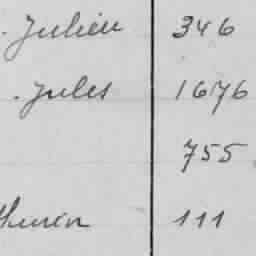 . Julien 346
. Jules 1676
755
111